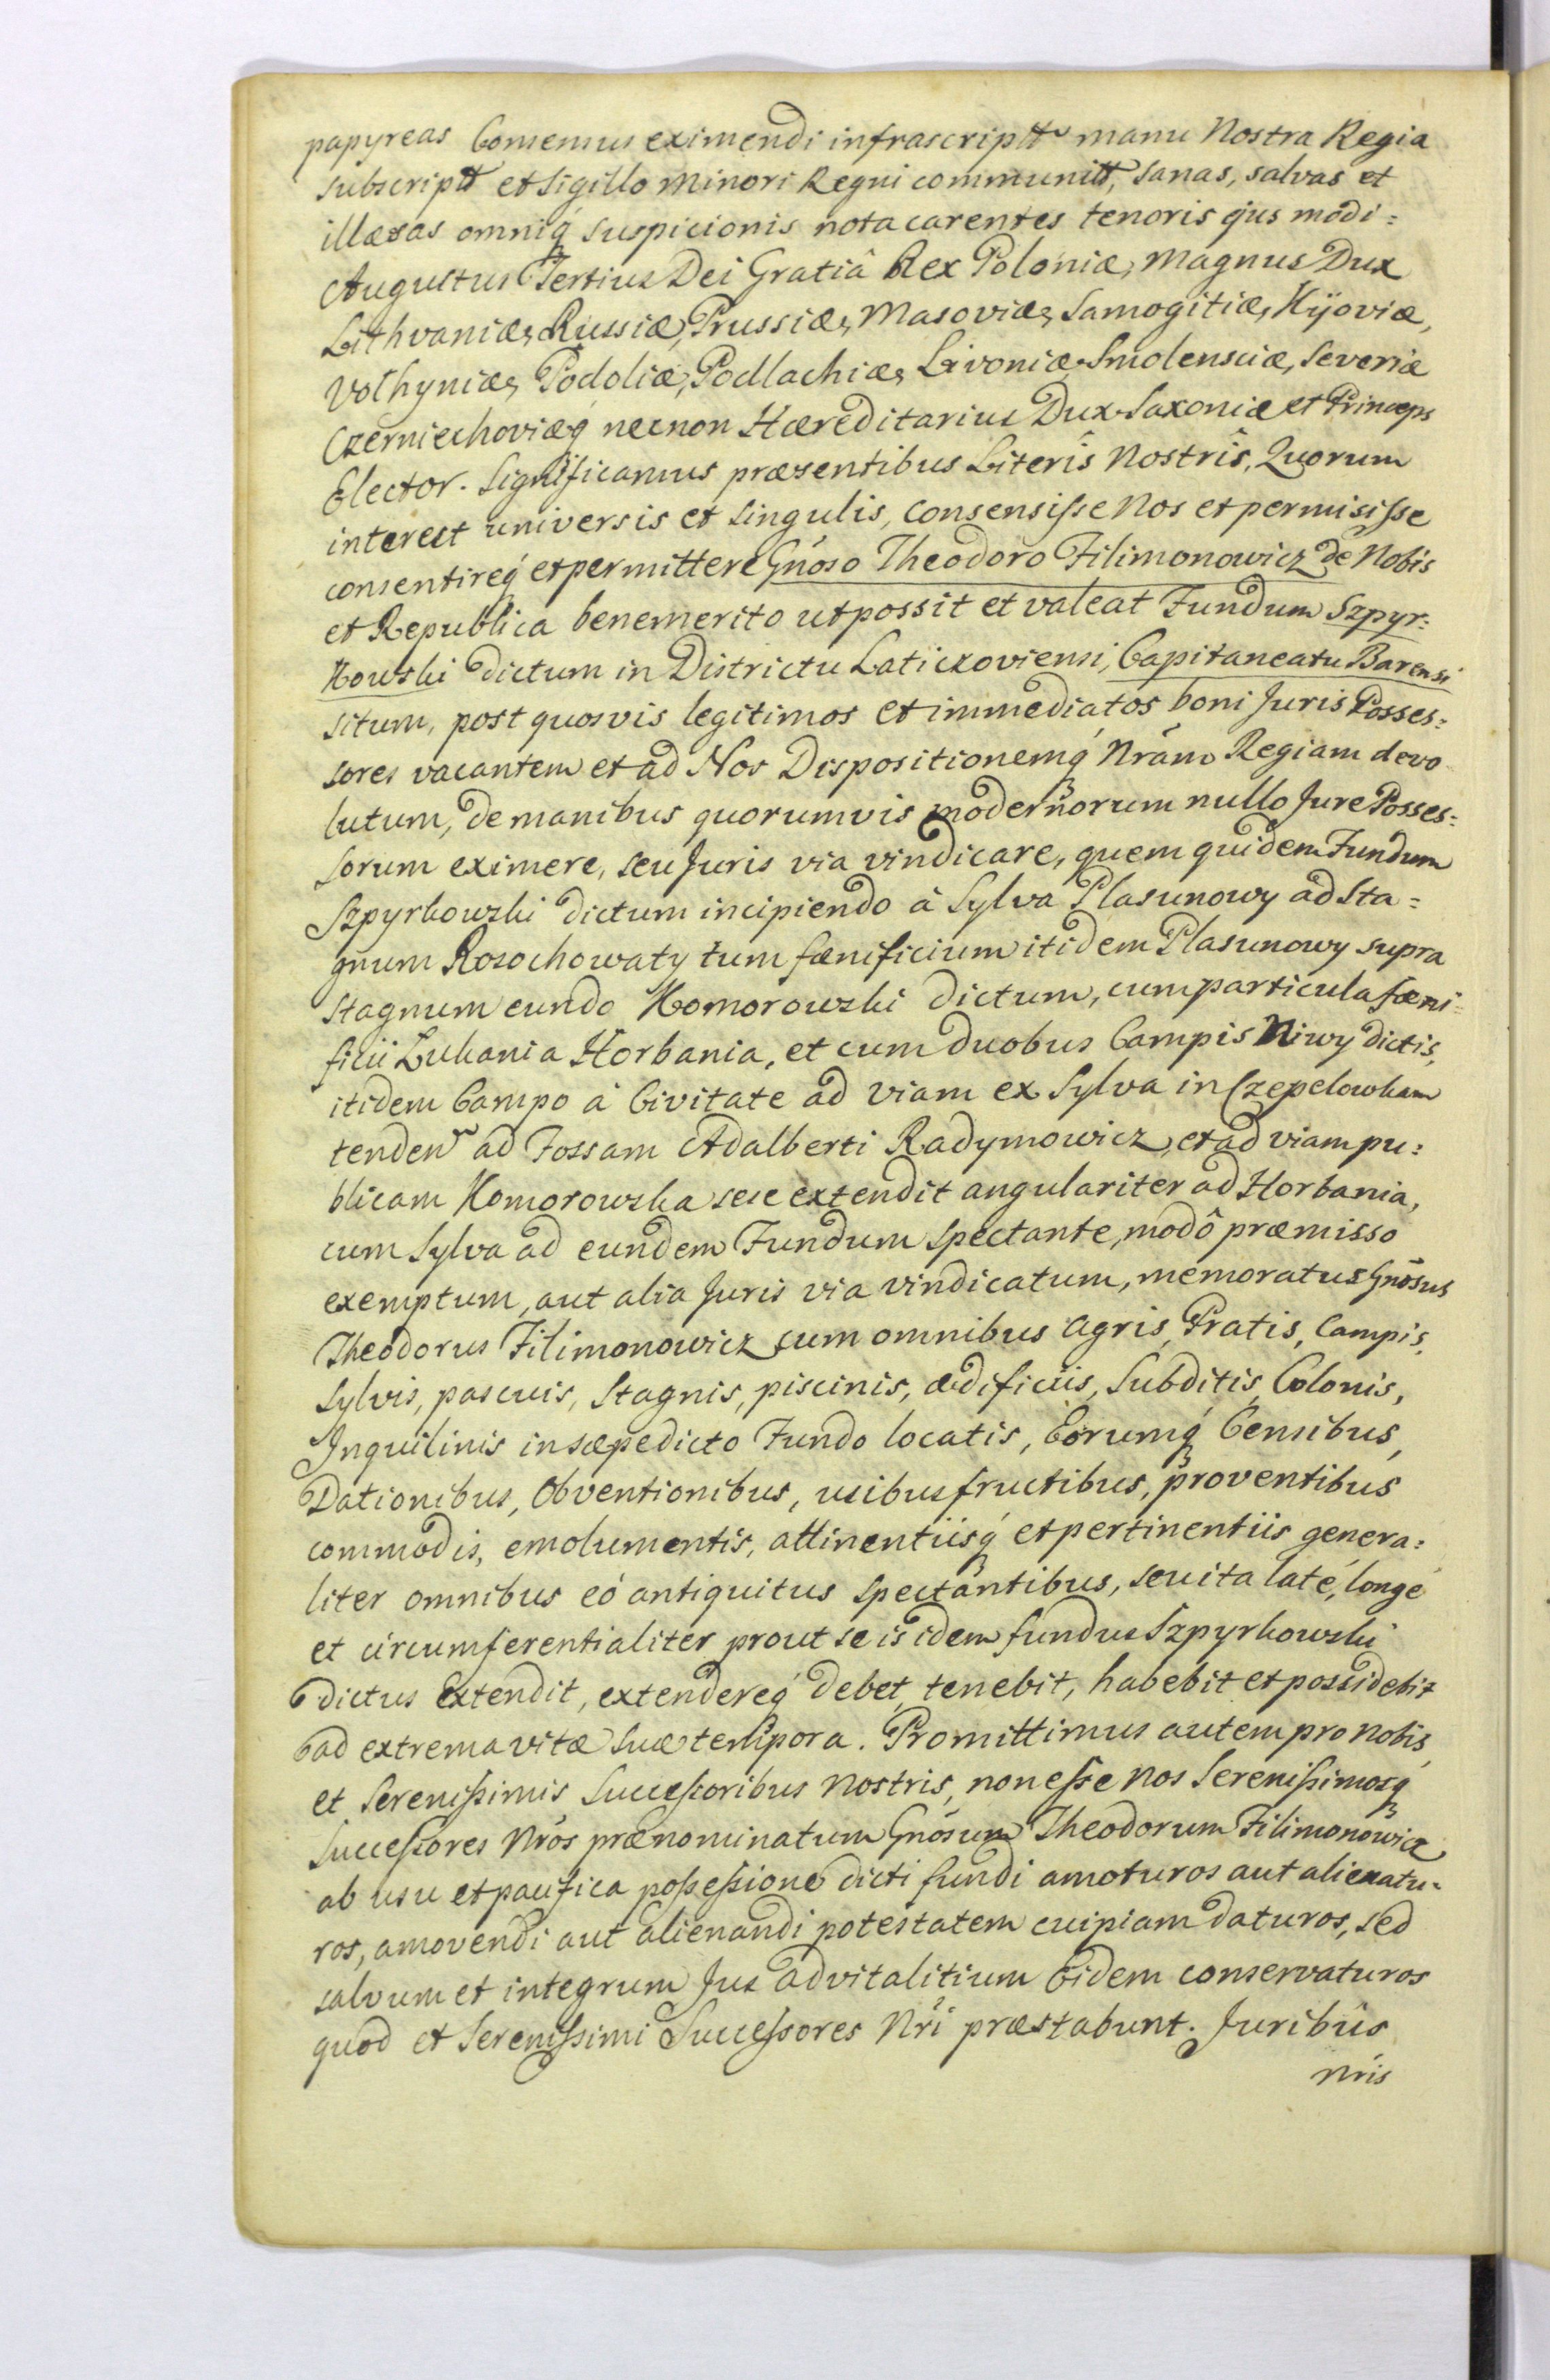 papyreas Consensus eximendi infrascriptt manu Nostra Regia
subscriptt et Sigillo Minori Regni communitt, sanas, salvas et
illæsas omniq́ suspicionis nota carentes tenoris ejus modi =
Augustus Tertius Dei Gratiâ Rex Poloniæ, Magnus Dux
Lithvaniæ, Russiæ, Prussiæ, Masoviæ, Samogitiæ, Kijoviæ,
Volhyniæ, Podoliæ, Podlachiæ, Livoniæ, Smolensciæ, Severiæ
Czerniechoviæq́ necnon Hæreditarius Dux Saxoniæ et Princeps
Elector. Significamus præsentibus Literîs Nostrîs, Quorum
interest universis et singulis, consensisse Nos et permisisse
consentireq́ et permittere Gnoso Theodoro Filimonowicz de Nobis
et Republica benemerito ut possit et valeat Fundum Szpyr:
kowski dictum in Districtu Laticzoviensi, Capitaneatu Barensi
situm, post quosvis legitimos et immediatos boni Juris Posses:
sores vacantem et ad Nos Dispositionemq́ Nrãm Regiam devo
lutum, de manibus quorumvis modernorum nullo Jure Posses:
sorum eximere, seu Juris via vindicare, quem quidem Fundum
Szpyrkowski dictum incipiendo à Sylva Plasunowy ad Sta =
gnum Rosochowaty tum fænificium itidem Plasunowy supra
stagnum eundo Komorowski dictum, cum particula fæni =
ficii Łukania Horbania, et cum duobus Campis Niwy dictis,
itidem Campo à Civitate ad viam ex Sylva in Czepelowkam
tenden ad Fossam Adalberti Radymowicz, et ad viam pu:
blicam Komorowska sese extendit angulariter ad Horbania,
cum Sylva ad eundem Fundum spectante, modô præmisso
exemptum, aut alia Juris via vindicatum, memoratus Gnosus
Theodorus Filimonowicz cum omnibus Agris, Pratis, Campis,
Sylvis, pascuis, Stagnis, piscinis, ædificiis, Subditis, Colonis,
Inquilinis in sæpedicto Fundo locatis, Eorumq́ Censibus,
Dationibus, Obventionibus, usibus fructibus, proventibus
commodis, emolumentis, attinentiisq́ et pertinentiis genera:
liter omnibus eó antiquitus spectantibus, seu ita laté, longé
et circumferentialiter prout se is idem fundus Szpyrkowski
dictus extendit, extendereq́ debet, tenebit, habebit et possidebit
ad extrema vitæ suæ tempora. Promittimus autem pro Nobis
et Serenissimis Successoribus Nostris, non esse Nos Serenissimosq́
Successores Nros prænominatum Gnosum Theodorum Filimonowicz
ab usu et pacifica possessione dicti fundi amoturos aut alienatu-
ros, amovendi aut alienandi potestatem cuipiam daturos, sed
salvum et integrum Jus advitalitium Eidem conservaturos
quod et Serenissimi Successores Nri præstabunt. Juribus
Nris